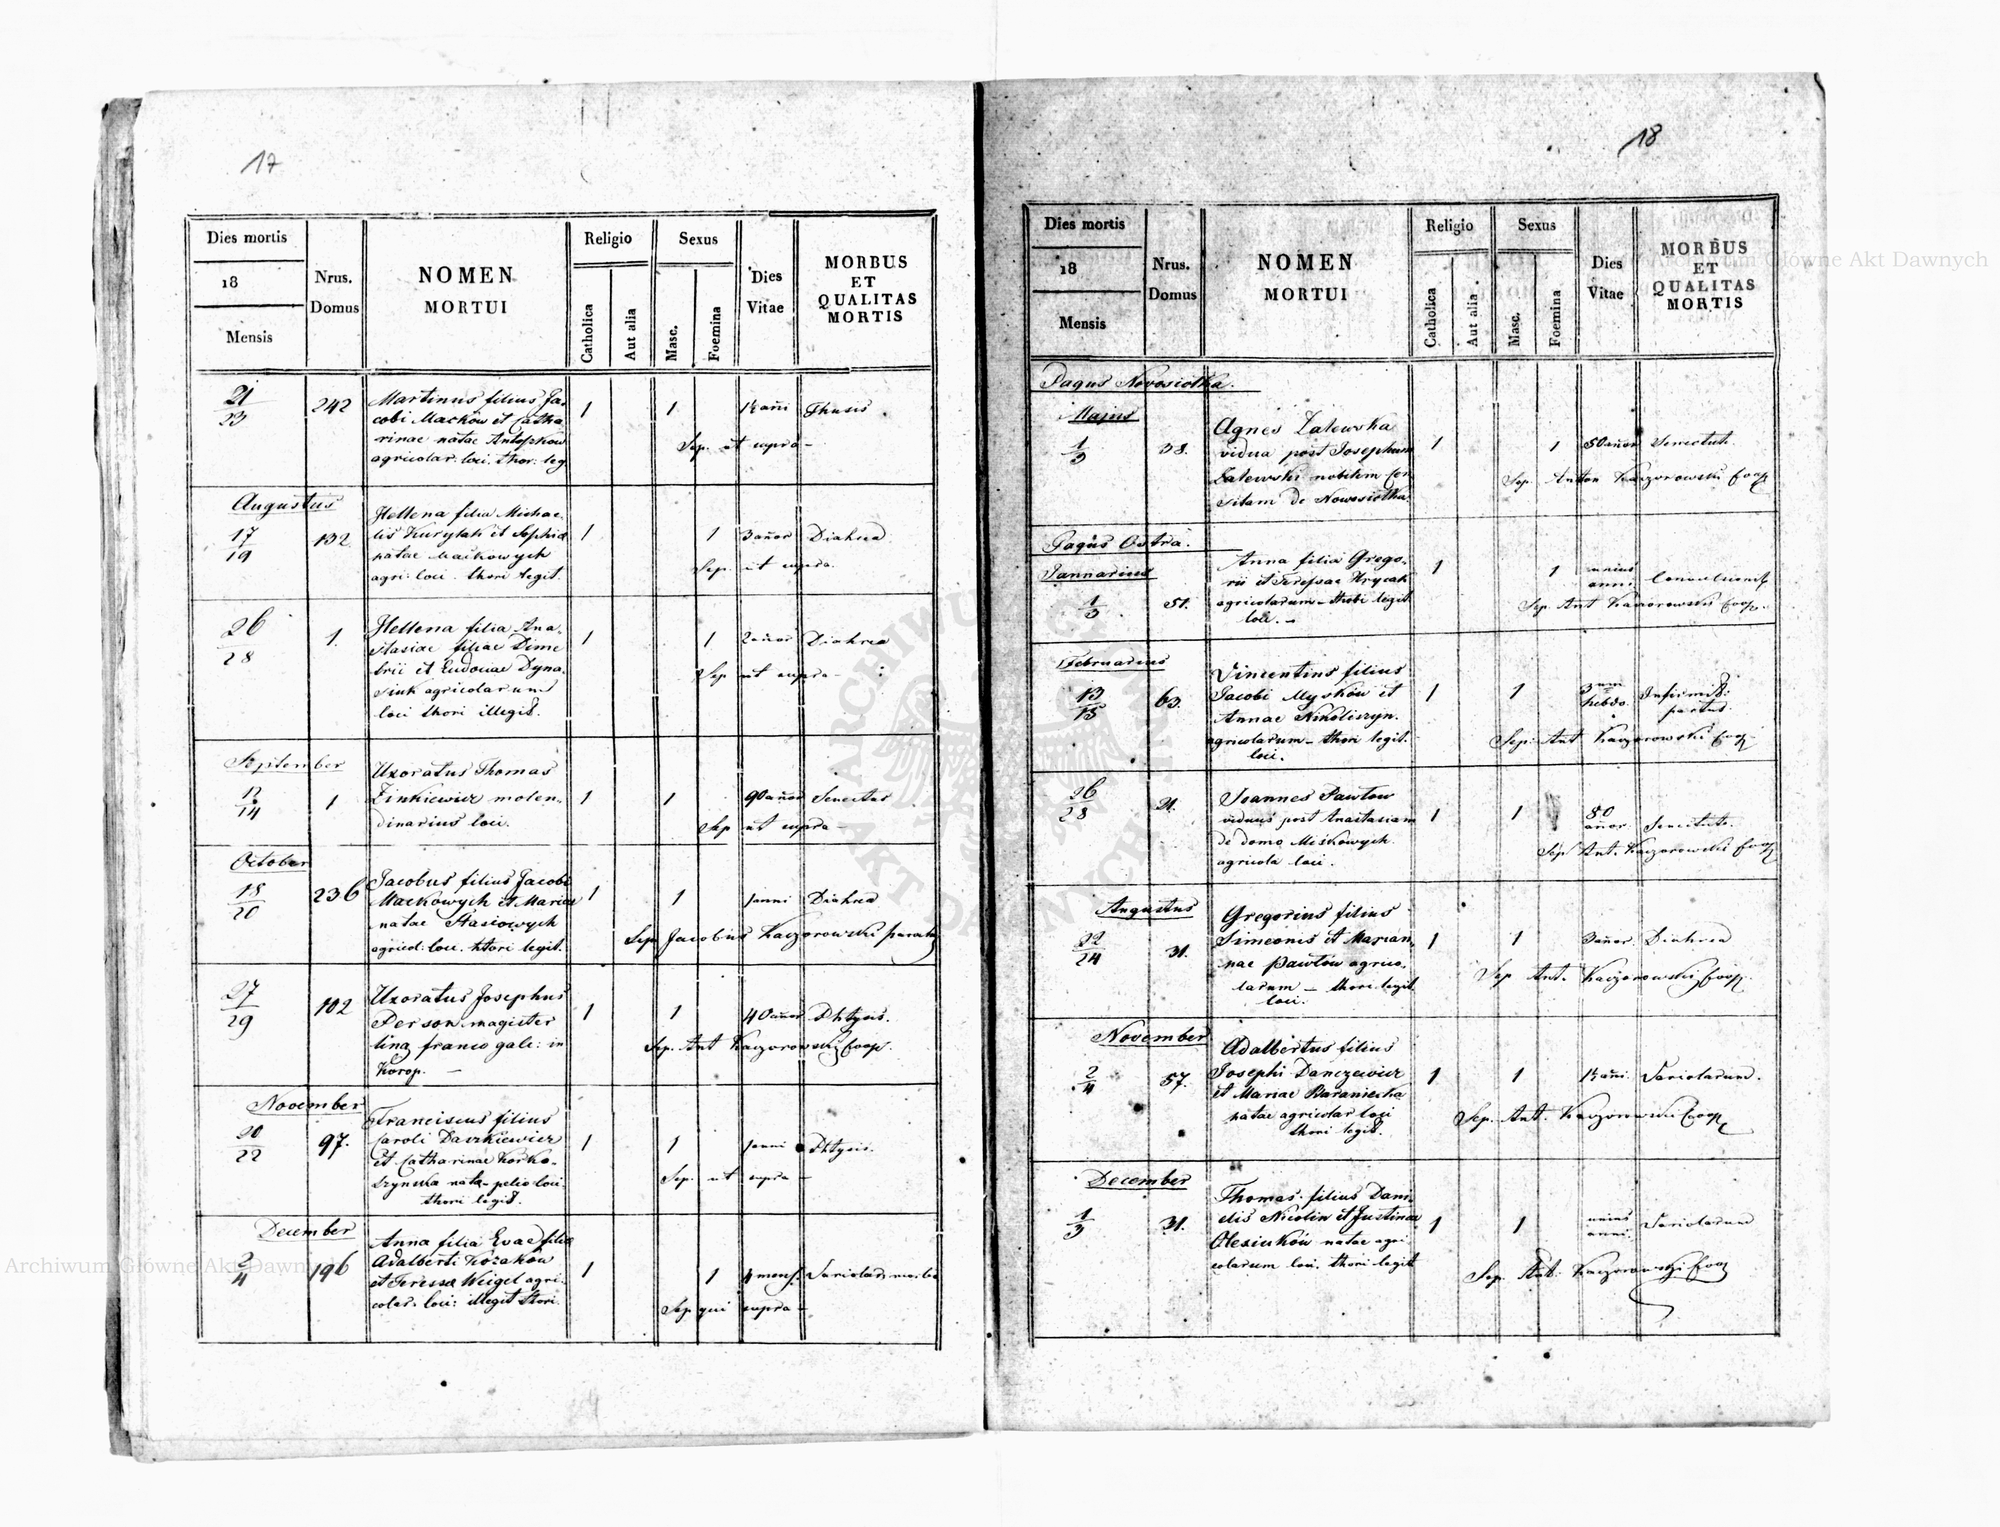 17
Dies mortis
18
Mensis
Nrus.
Domus
NOMEN
MORTUI
Religio
Catholica
Aut alia
Sexus
Masc.
Foemina
Dies
Vitae
MORBUS
ET
QUALITAS
MORTIS
21
23
242
Martinus filius Ja-
cobi Macków et Catha
rinae natae
agricolar: loci. thor: leg
1
1
Sep. ut supra -
Augustus
17
19
132
Hellena filia Michae-
lis Kurylak et Sophia
natae Maćkowych
agri: loci. thori legit.
1
1
3 añor
Diahrea
Sep. ut supra.
26
28
1.
Hellena filia Ana-
stasiae filiae Dime
trii et Eudociae Dyna-
siuk agricolarum
loci thori illegit.
1
1
2 añor
Diahrea
Sep ut supra -
September
12
14
1
Uxoratus Thomas
Zinkiewicz molen-
dinarius loci.
1
1
90 añor
Senectus
Sep ut supra -
October
18
20
236
Jacobus filius Jacobi
Maćkowych et Mariae
natae Stasiowych
agricol: loci. thori legit.
1
1
1 anni
Diahrea
Sep Jacobus Kaczorowski
27
29
102
Uxoratus Josephus
Person magister
ling franco gale: in
Korop. -
1
1
40 añor
Phtysis.
Sep. Ant Kaczorowski Coop.
November
20
22
97.
Franciscus filius
Caroli Daszkiewicz
et Catharinae Korko-
szynska nata - pelio loci
thori legit.
1
1
1 anni
Phtysis.
Sep. ut supra -
December
2
4
196
Anna filia Evae filia
Adalberti Kozaków
et Teressa Weigel agri-
colar. loci: illegit thori.
1
1
4 mens.
Sep qui supra -
18
Dies mortis
18
Mensis
Nrus.
Domus
NOMEN
MORTUI
Religio
Catholica
Aut alia
Sexus
Masc.
Foemina
Dies
Vitae
MORBUS
ET
QUALITAS
MORTIS
Pagus Nowosiołka.
Majus
1
3
38.
Agnes Zalewska
vidua post Josephum
Zalewski nobilem
de Nowosiołka
1
1
80 añor
Senectute.
Sep. Anton Kaczorowski Coop
Pagus Ostra.
Jannarius
1
3
51.
Anna filia Grego-
rii et Teressae Hrycak
agricolarum - thori legit
loci. -
1
1
unius
anni
Sep. Ant Kaczorowski Coop.
Februarius
13
15
63.
Vincentius filius
Jacobi Mysków et
Annae Nikoliszyn.
agricolarum - thori legit.
loci.
1
1
3
hebdo.
partus.
Sep. Ant Kaczorowski Coop
26
28
21.
Joannes Pawłow
viduus post Anastasiam
de domo Miśkowych
agricola loci.
1
1
80
añor.
Senectute.
Sep Ant. Kaczorowski Coop
Augustus
22
24
31.
Gregorius filius
Simeonis et Marian-
nae Pawłów agrico-
larum - thori legit
loci.
1
1
3 añor.
Diahrea
Sep Ant. Kaczorowski Coop.
November
2
4
57.
Adalbertus filius
Josephi Danczewicz
et Mariae Baraniecka
natae agricolar loci
thori legit.
1
1
Variolarum.
Sep. Ant. Kaczorowski Coop
December
1
3
31.
Thomas filius Dani-
elis Nicolin et Justinae
Olexiuków natae agri-
colarum loci. thori legit
1
1
unius
anni.
Variolarum
Sep. Ant. Kaczorowski Coop
Archiwum Główne Akt Dawnych
Archiwum Główne Akt Dawnych
ARCHIWUM GŁÓWNE AKT DAWNYCH